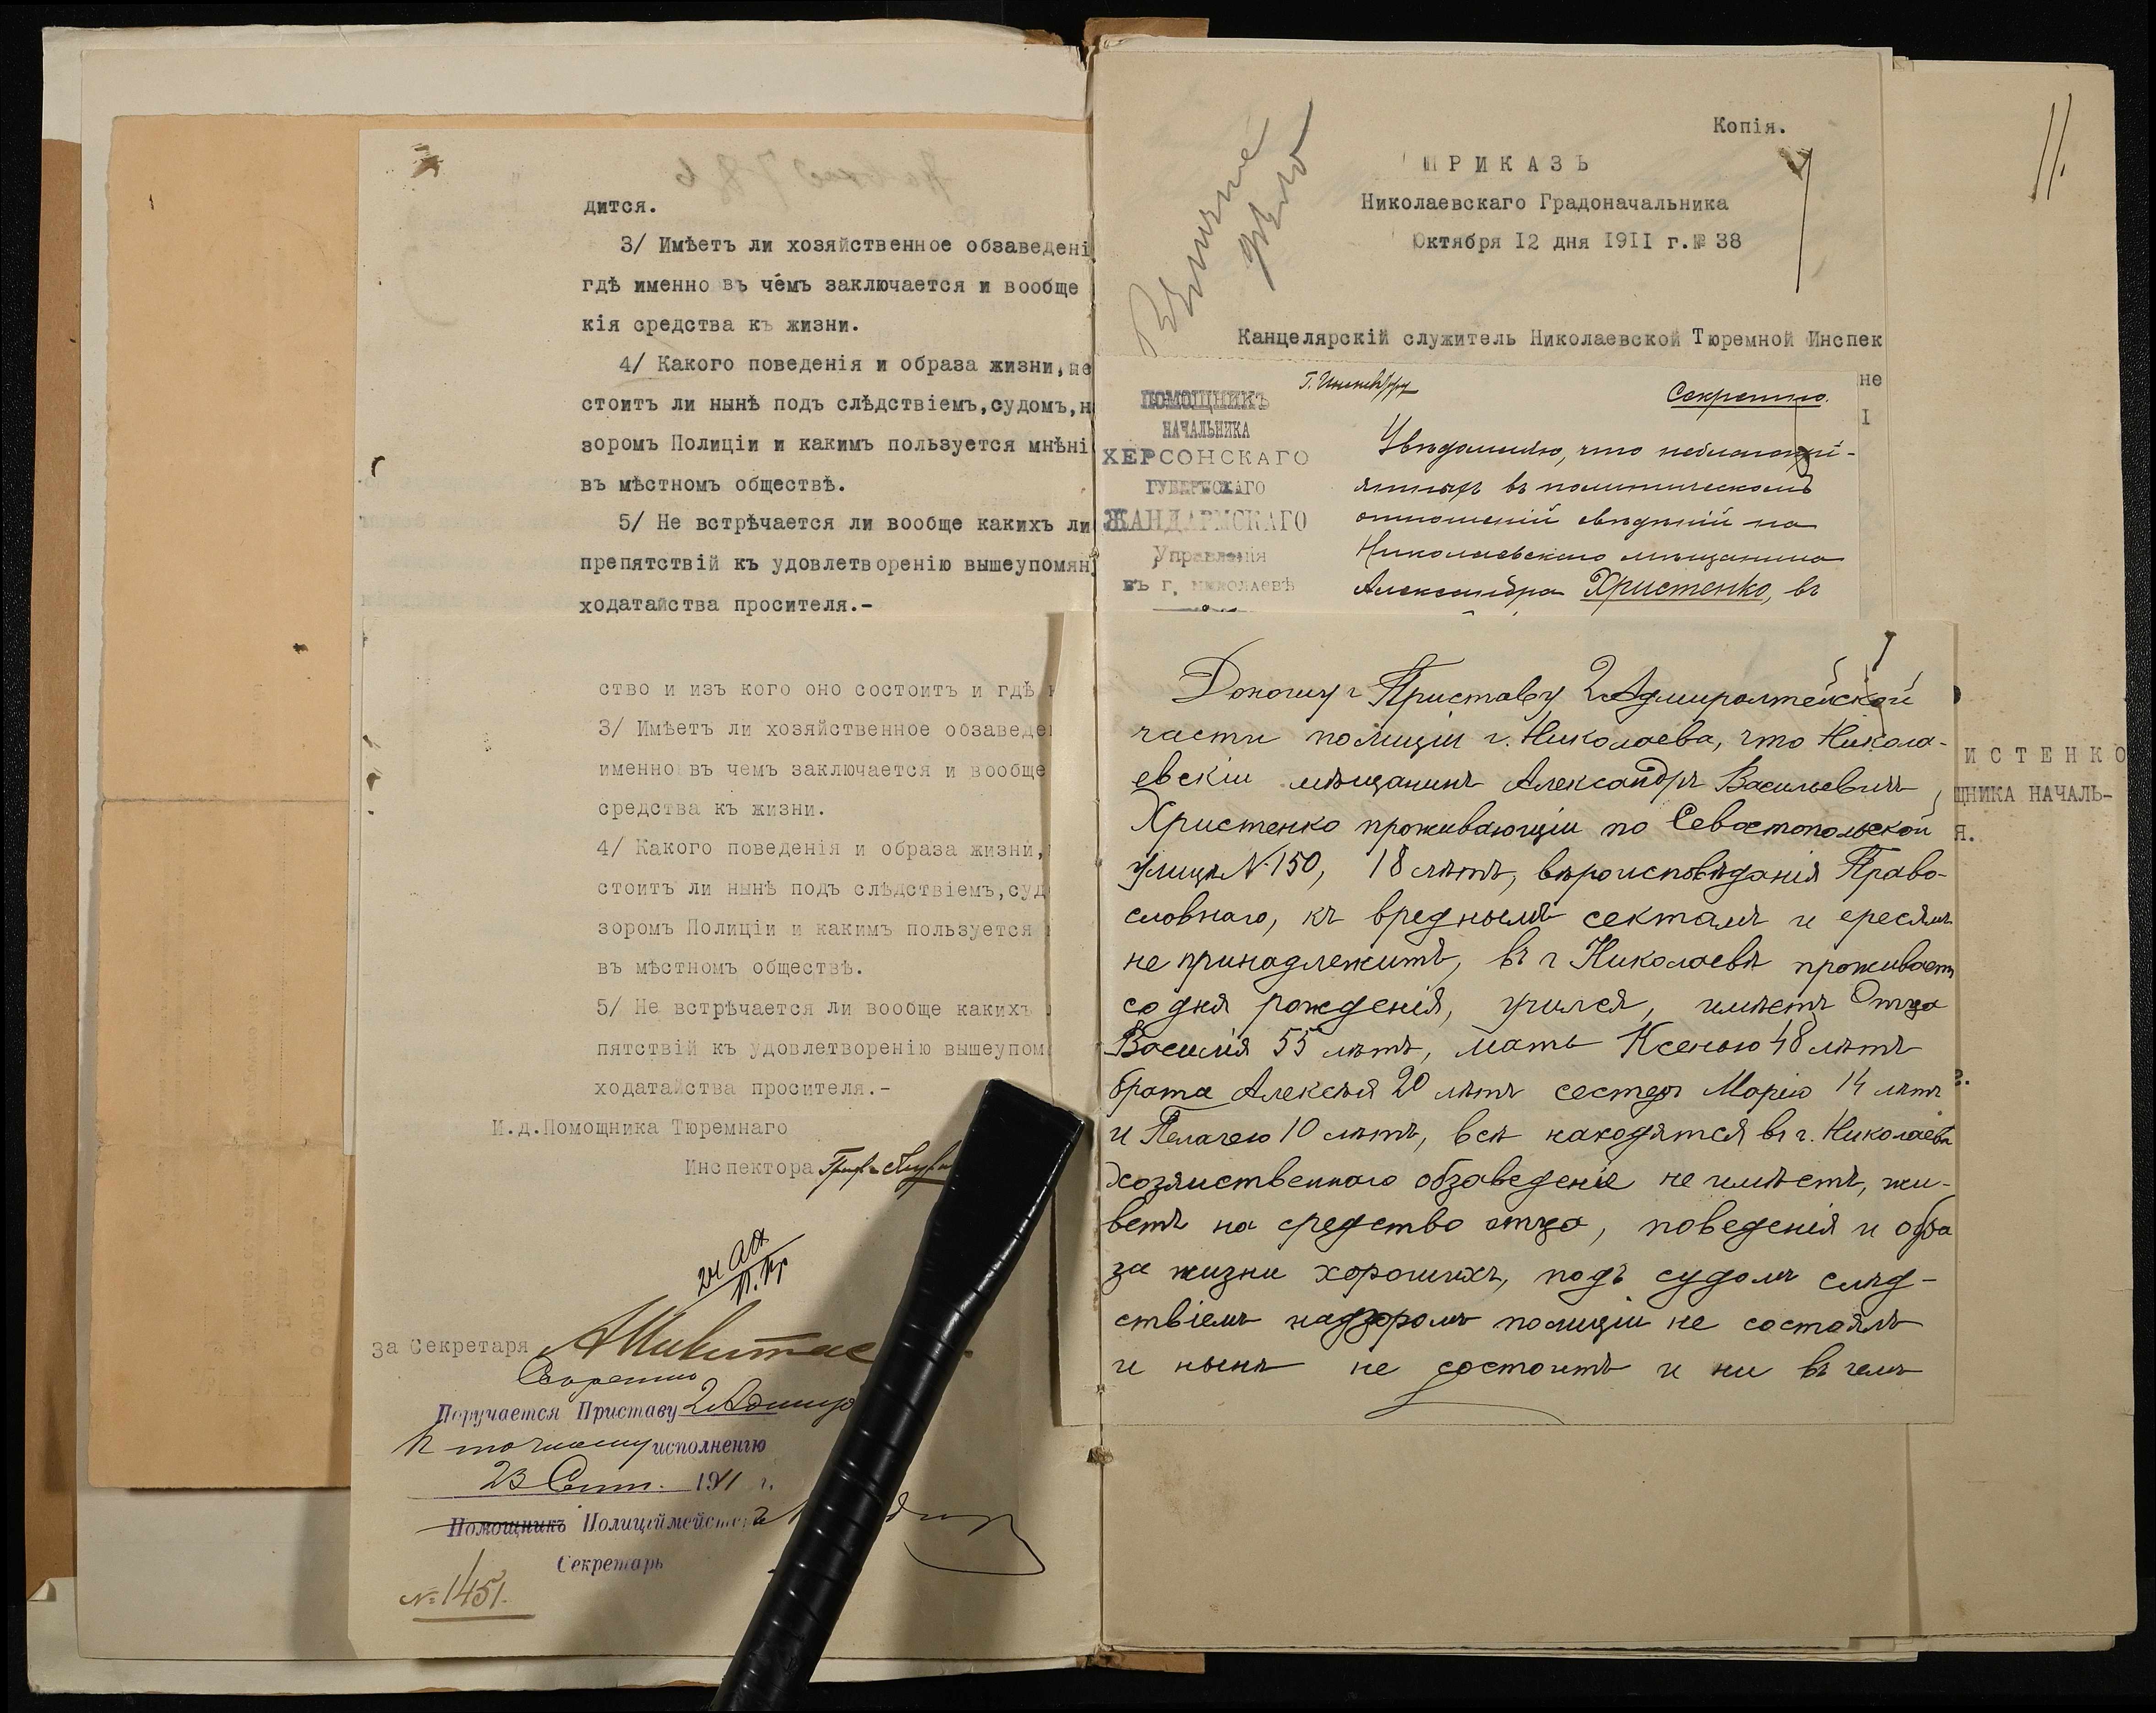 дится.
3/ Имѣетъ ли хозяйственное обзаведені
гдѣ именно въ чемъ заключается и вообще
кія средства къ жизни.
4/ Какого поведенія и образа жизни, не
стоитъ ли нынѣ подъ слѣдствіемъ,судомъ,н
зоромъ Полиціи и какимъ пользуется мнѣні
въ мѣстномъ обществѣ.
5/ Не встрѣчается ли вообще какихъ ли
препятствій къ удовлетворенію вышеупомян
ходатайства просителя.-
ство и изъ кого оно состоитъ и гдѣ
3/ Имѣетъ ли хозяйственное обзаведе
именно въ чемъ заключается и вообще
средства къ жизни.
4/ Какого поведенія и образа жизни,
стоитъ ли нынѣ подъ слѣдствіемъ,суд
зоромъ Полиціи и какимъ пользуется
въ мѣстномъ обществѣ.
5/ Не встрѣчается ли вообще какихъ
пятствій къ удовлетворенію вышеупом
ходатайства просителя.-
И.д.Помощника Тюремнаго
Инспектора
за Секретаря
Секретно
Поручается Приставу 2 Адмир
к точному исполненію
23 Сент. 1911 г.
Помощникъ Полиціймейстеръ
Секретарь
№ 1451.
11.
Копія.
ПРИКАЗЪ
Николаевскаго Градоначальника
Октября 12 дня 1911 г.№ 38
Канцелярскій служитель Николаевской Тюремной Инспек
не
I
Г. Инспектору
Секретно.
ПОМОЩНИКЪ
НАЧАЛЬНИКА
ХЕРСОНСКАГО
ГУБЕРНСКАГО
ЖАНДАРМСКАГО
Управленія
въ г. Николаевѣ
Увѣдомляю, что неблагопрі-
ятныхъ въ политическомъ
отношеніи свѣдѣній на
Николаевскаго мѣщанина
Александра Христенко, въ
Доношу г Приставу 2 Адмиралтейской
части полиціи г. Николаева, что Никола-
евскіи мѣщанинъ Александръ Васильевичъ
Христенко проживающіи по Севастопольской
улицѣ № 150, 18 лѣтъ, вѣроисповѣданія Право-
славнаго, къ вреднымъ сектамъ и ересямъ
не принадлежитъ, въ г Николаевѣ проживаетъ
со дня рожденія, учился, имѣетъ Отца
Василія 55 лѣтъ, мать Ксенью 48 лѣтъ
брата Алексѣя 20 лѣтъ сестеръ Марію 14 лѣтъ
и Пелагею 10 лѣтъ, всѣ находятся въ г. Николаевѣ
хозяиственнаго обзаведеніе не имѣетъ, жи-
ветъ на средство отца, поведенія и обра
за жизни хорошихъ, подъ судомъ слѣд-
ствіемъ надзоромъ полиціи не состоялъ
и нынѣ не состоитъ и ни въ чемъ
ИСТЕНКО
ЩНИКА НАЧАЛЬ-
Я.